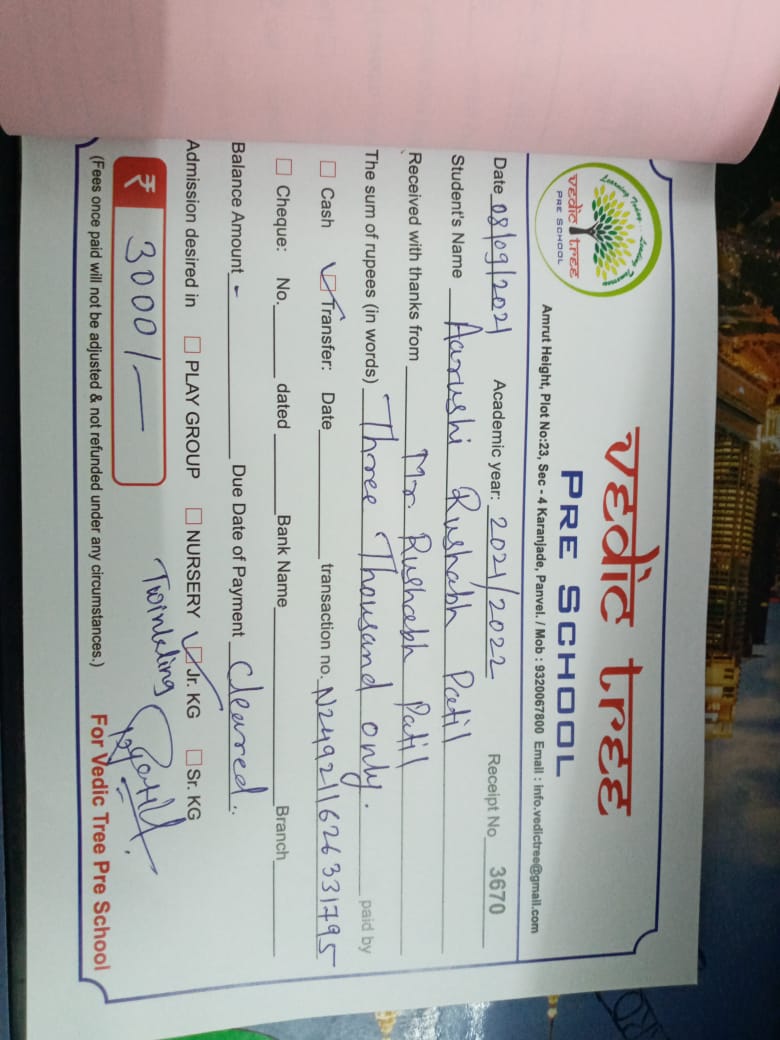 Learning Today... Leading Tomorrow
vedic tree
PRE SCHOOL
vedic tree
PRE SCHOOL
Amrut Height, Plot No:23, Sec - 4 Karanjade, Panvel. / Mob : 9320067800 Email : info.vedictree@gmail.com
Date 08/09/2021 Academic year: 2021/2022 Receipt No 3670
Student's Name Aarushi Rushabh Patil
Received with thanks from Mr Rushabh Patil
The sum of rupees (in words) Three Thousand only. paid by
Cash Transfer: Date transaction no. N249211626331795
Cheque: No. dated Bank Name Branch
Balance Amount - Due Date of Payment Cleared.
Admission desired in PLAY GROUP NURSERY Jr. KG Sr. KG
₹ 3000/- Twinkling
(Fees once paid will not be adjusted & not refunded under any circumstances.) For Vedic Tree Pre School